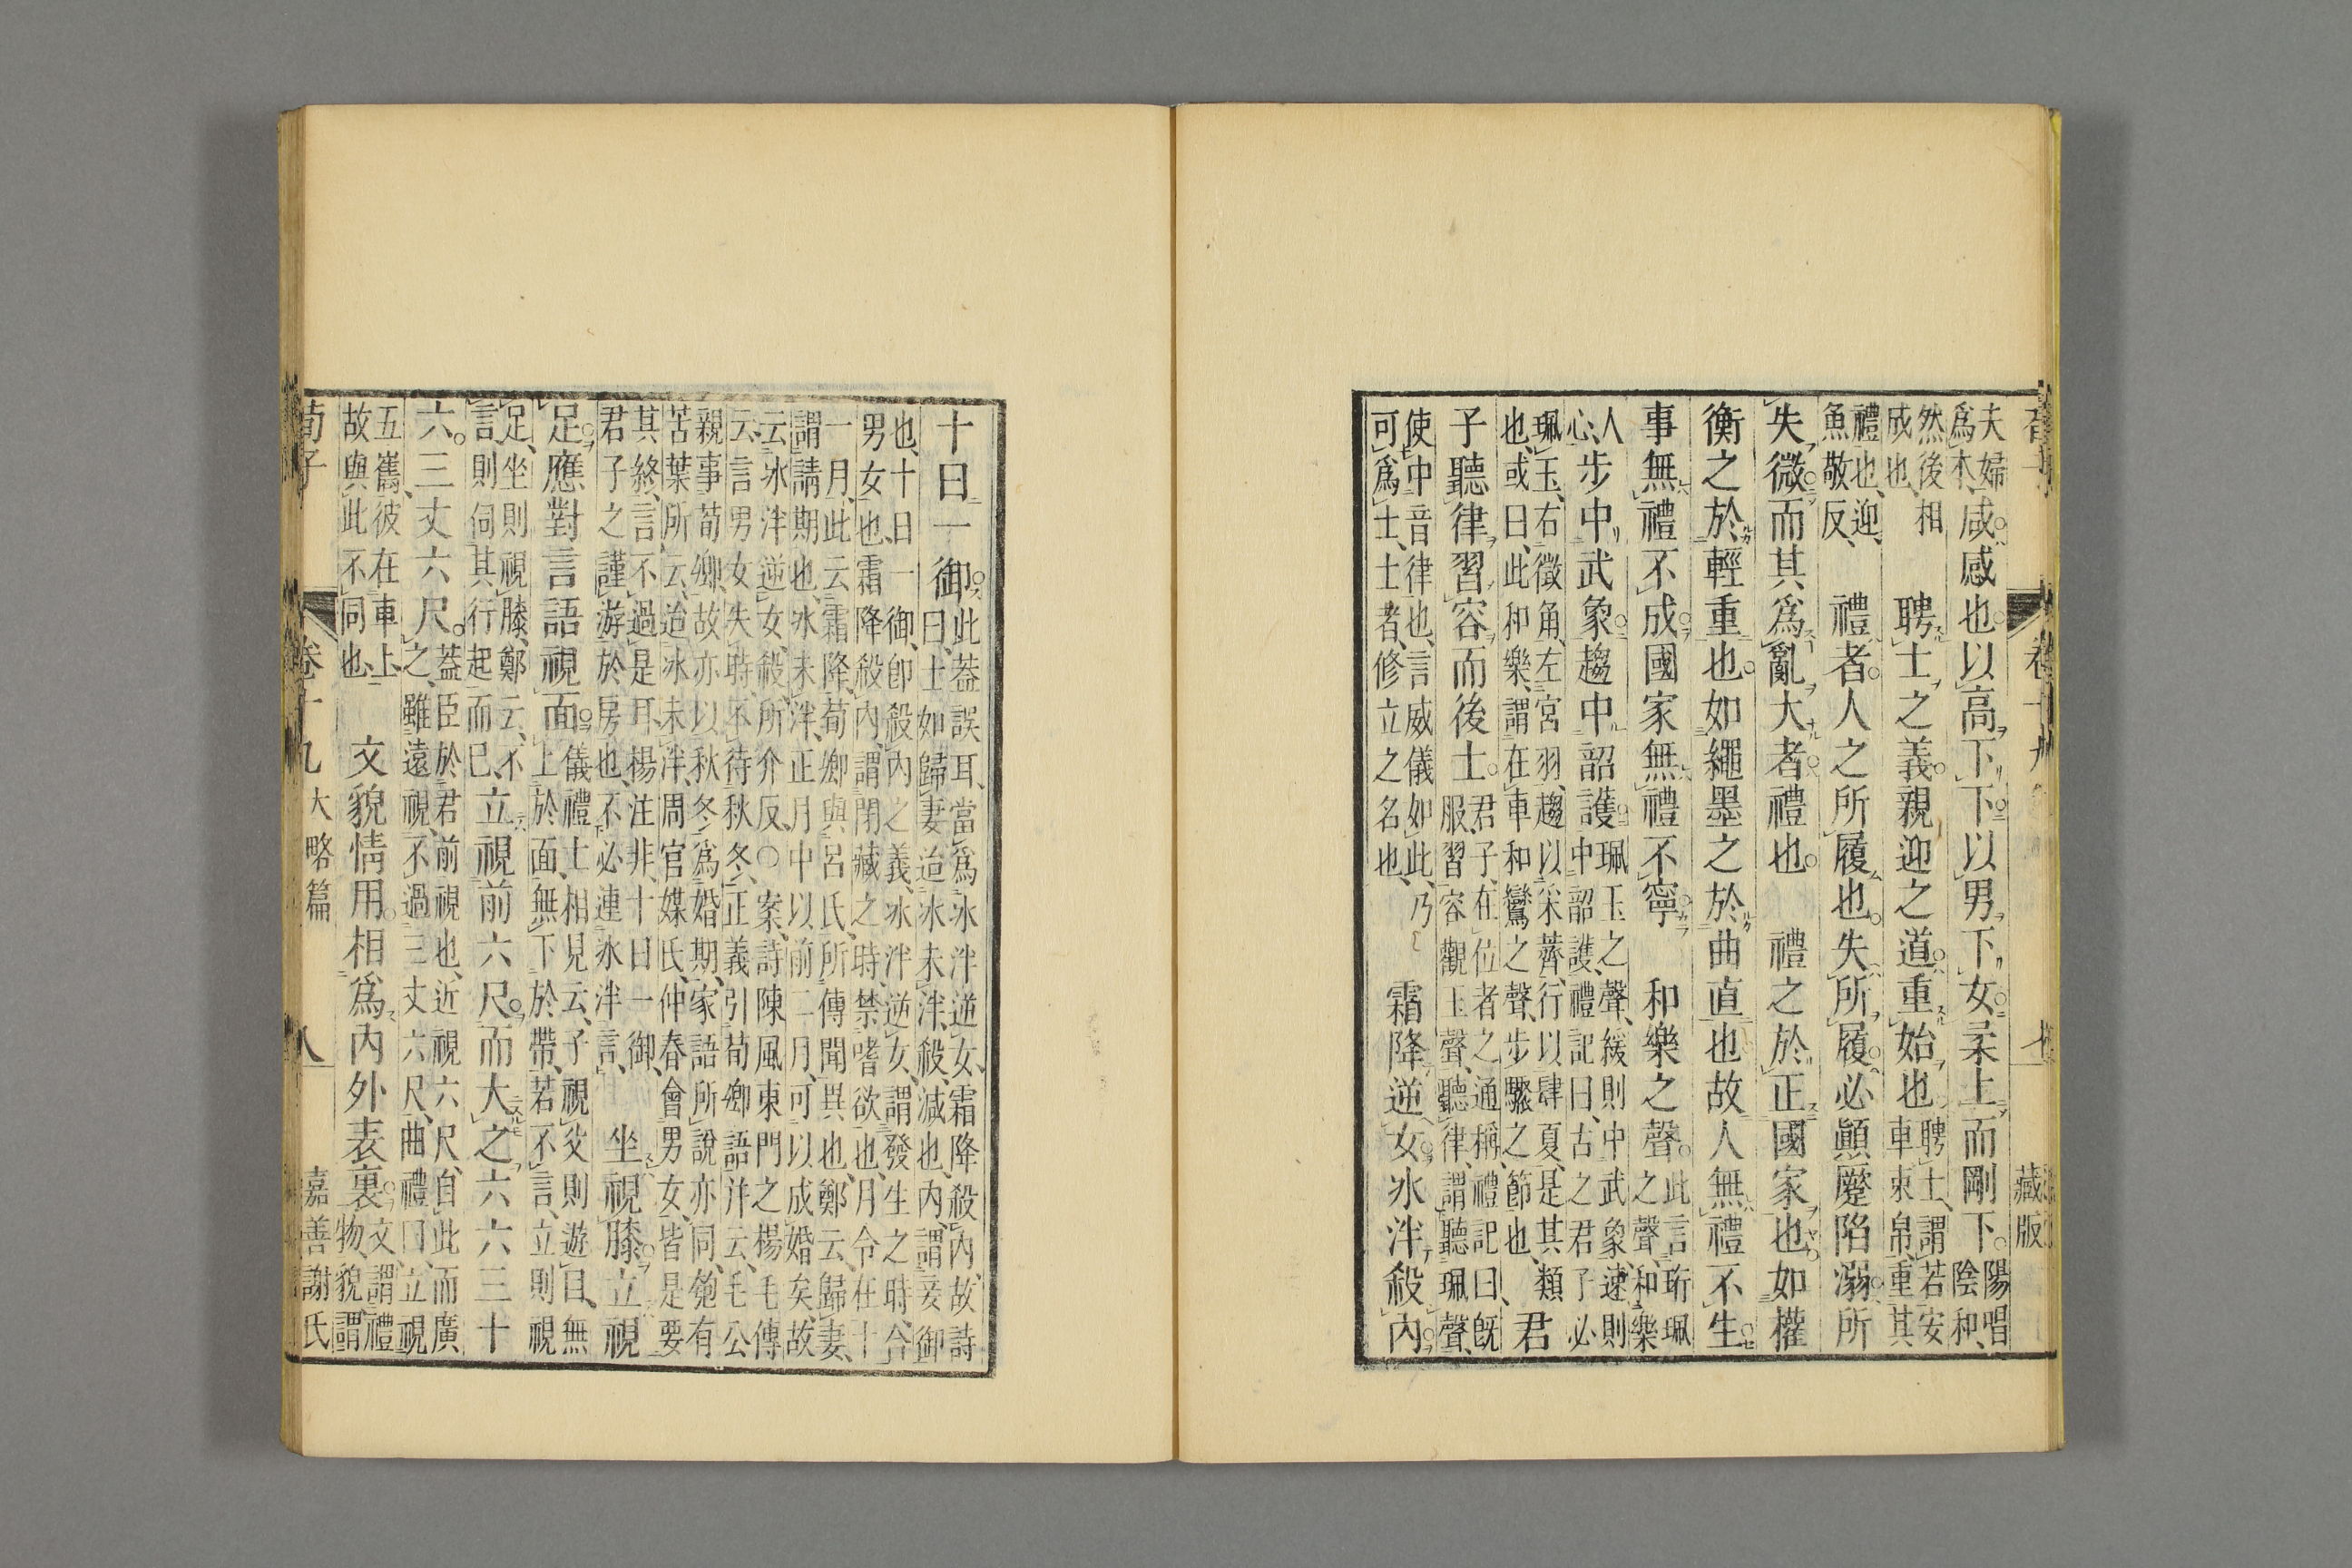 夫婦爲本、咸感也以高下下以男下女柔上而剛下陽唱陰和、
然後相成也、聘士之義親迎之道重始也聘士、謂若安車束帛、重其
禮也、迎、魚敬反、禮者人之所履也失所履必顚蹷陷溺所
失微而其爲亂大者禮也 禮之於正國家也如權
衡之於輕重也如繩墨之於曲直也故人無禮不生
事無禮不成國家無禮不寧 和樂之聲此言珩珮之聲、和樂
人心、步中武象趨中韶護珮玉之聲、緩則中武象、速則中韶護、禮記曰、古之君子必
珮玉、右徵角、左宮羽、趨以采薺、行以肆夏、是其類也、或曰、此和樂、謂在車和鸞之聲、步驟之節也、君
子聽律習容而後士君子、在位者之通稱、禮記曰、旣服、習容觀玉聲、聽律、謂聽珮聲、
使中音律也、言威儀如此、乃可爲士、士者、修立之名也、 霜降逆女冰泮殺內
藏版
十日一御此葢誤耳、當爲冰泮逆女、霜降殺內、故詩曰、士如歸妻、迨冰未泮、殺、減也、內、謂妾御
也、十日一御、卽殺內之義、冰泮逆女、謂發生之時、合男女也、霜降殺內、謂閉藏之時、禁嗜欲也、月令在十
一月、此云霜降、荀卿與呂氏所傳聞異也、鄭云、歸妻、謂請期也、冰未泮、正月中以前、二月可以成婚矣、故
云、冰泮逆女、殺、所介反、○案、詩陳風東門之楊毛傳云、言男女失時、不待秋冬、正義引荀卿語、并云、毛公
親事荀卿、故亦以秋冬爲婚期、家語所說亦同、匏有苦葉所云、迨冰未泮、周官媒氏、仲春會男女、皆是要
其終、言不過是耳、楊注非、十日一御、君子之謹游於房也、不必連冰泮言、 坐視膝立視
足應對言語視面儀禮士相見云、子視父則遊目、無上於面、無下於帶、若不言、立則視
足、坐則視膝、鄭云、不言則伺其行起而已、立視前六尺而大之六六三十
六三丈六尺葢臣於君前視也、近視六尺、自此而廣之、雖遠視、不過三丈六尺、曲禮曰、立視
五巂、彼在車上、故與此不同也、 文貌情用相爲內外表裏文、謂禮物、貌、謂
荀子 卷十九 大略篇 八 嘉善謝氏